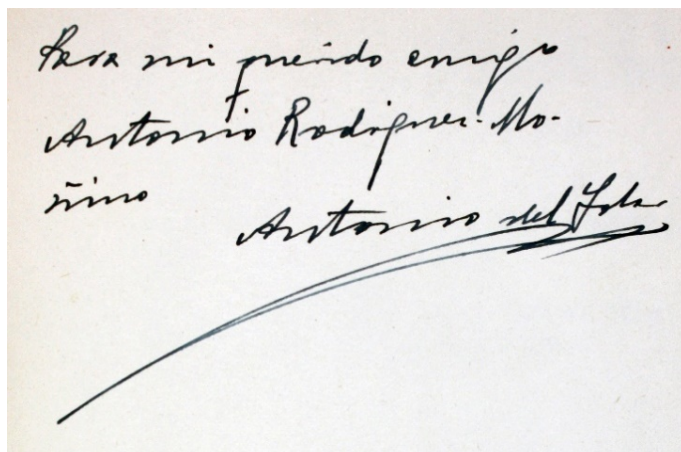 Para mi querido amigo
Antonio Rodríguez-Mo-
ñino
Antonio del